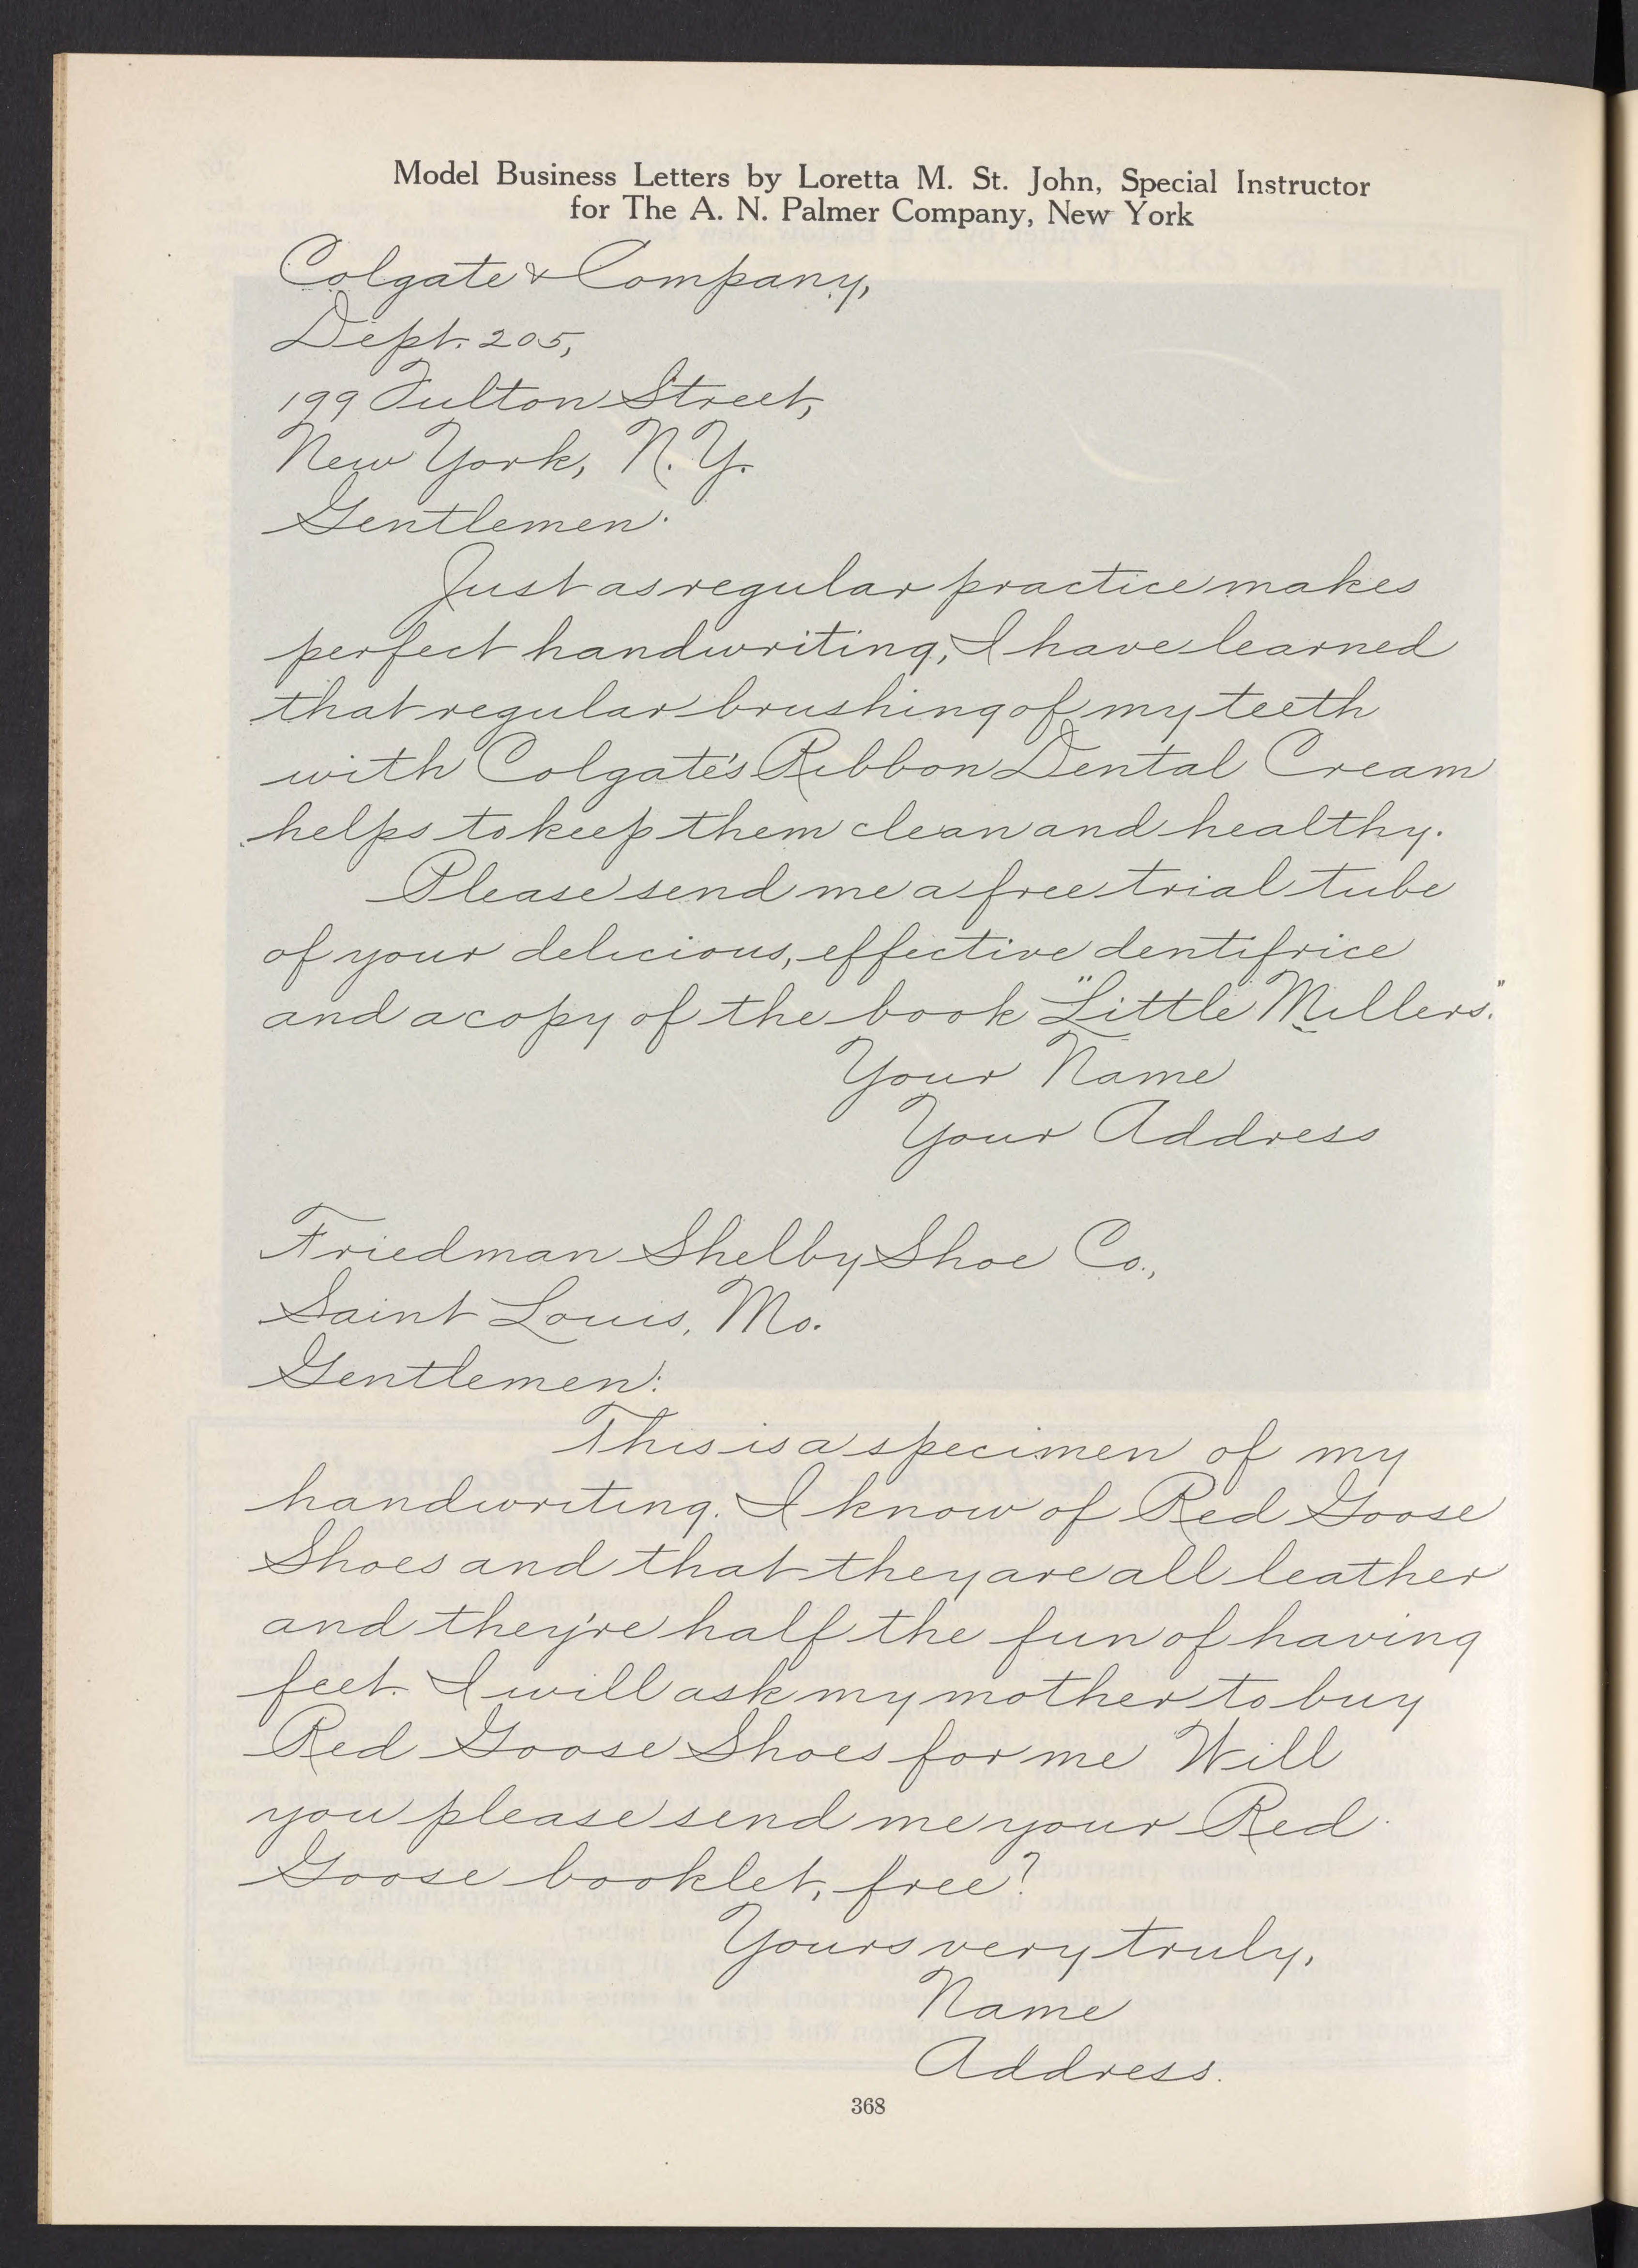 Model Business Letters by Loretta M. St. John, Special Instructor
for The A. N. Palmer Company, New York
Colgate & Company,
Dept. 205,
199 Fulton Street,
New York, N.Y.
Gentlemen:
Just as regular practice makes
perfect handwriting, I have learned
that regular brushing of my teeth
with Colgate's Ribbon Dental Cream
helps to keep them clean and healthy.
Please send me a free trial tube
of your delicious, effective dentifrice
and a copy of the book "Little Millers."
Your Name
Your Address
Friedman Shelby Shoe Co.,
Saint Louis, Mo.
Gentlemen:
This is a specimen of my
handwriting. I know of Red Goose
Shoes and that they are all leather
and they're half the fun of having
feet. I will ask my mother to buy
Red Goose Shoes for me Will
you please send me your Red
Goose booklet, free?
Yours very truly,
Name
Address.
368